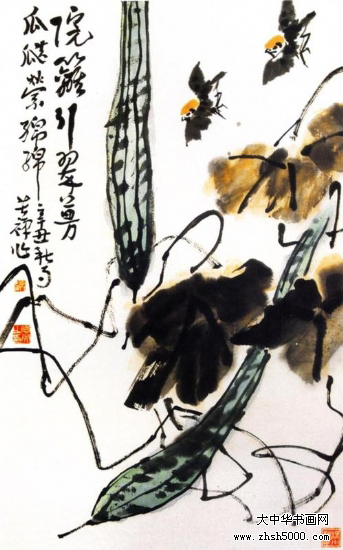 院篱引翠蔓
瓜瓞紫绵绵
辛丑秋写
苦禅作
大中华书画网
www.zhsh5000.com